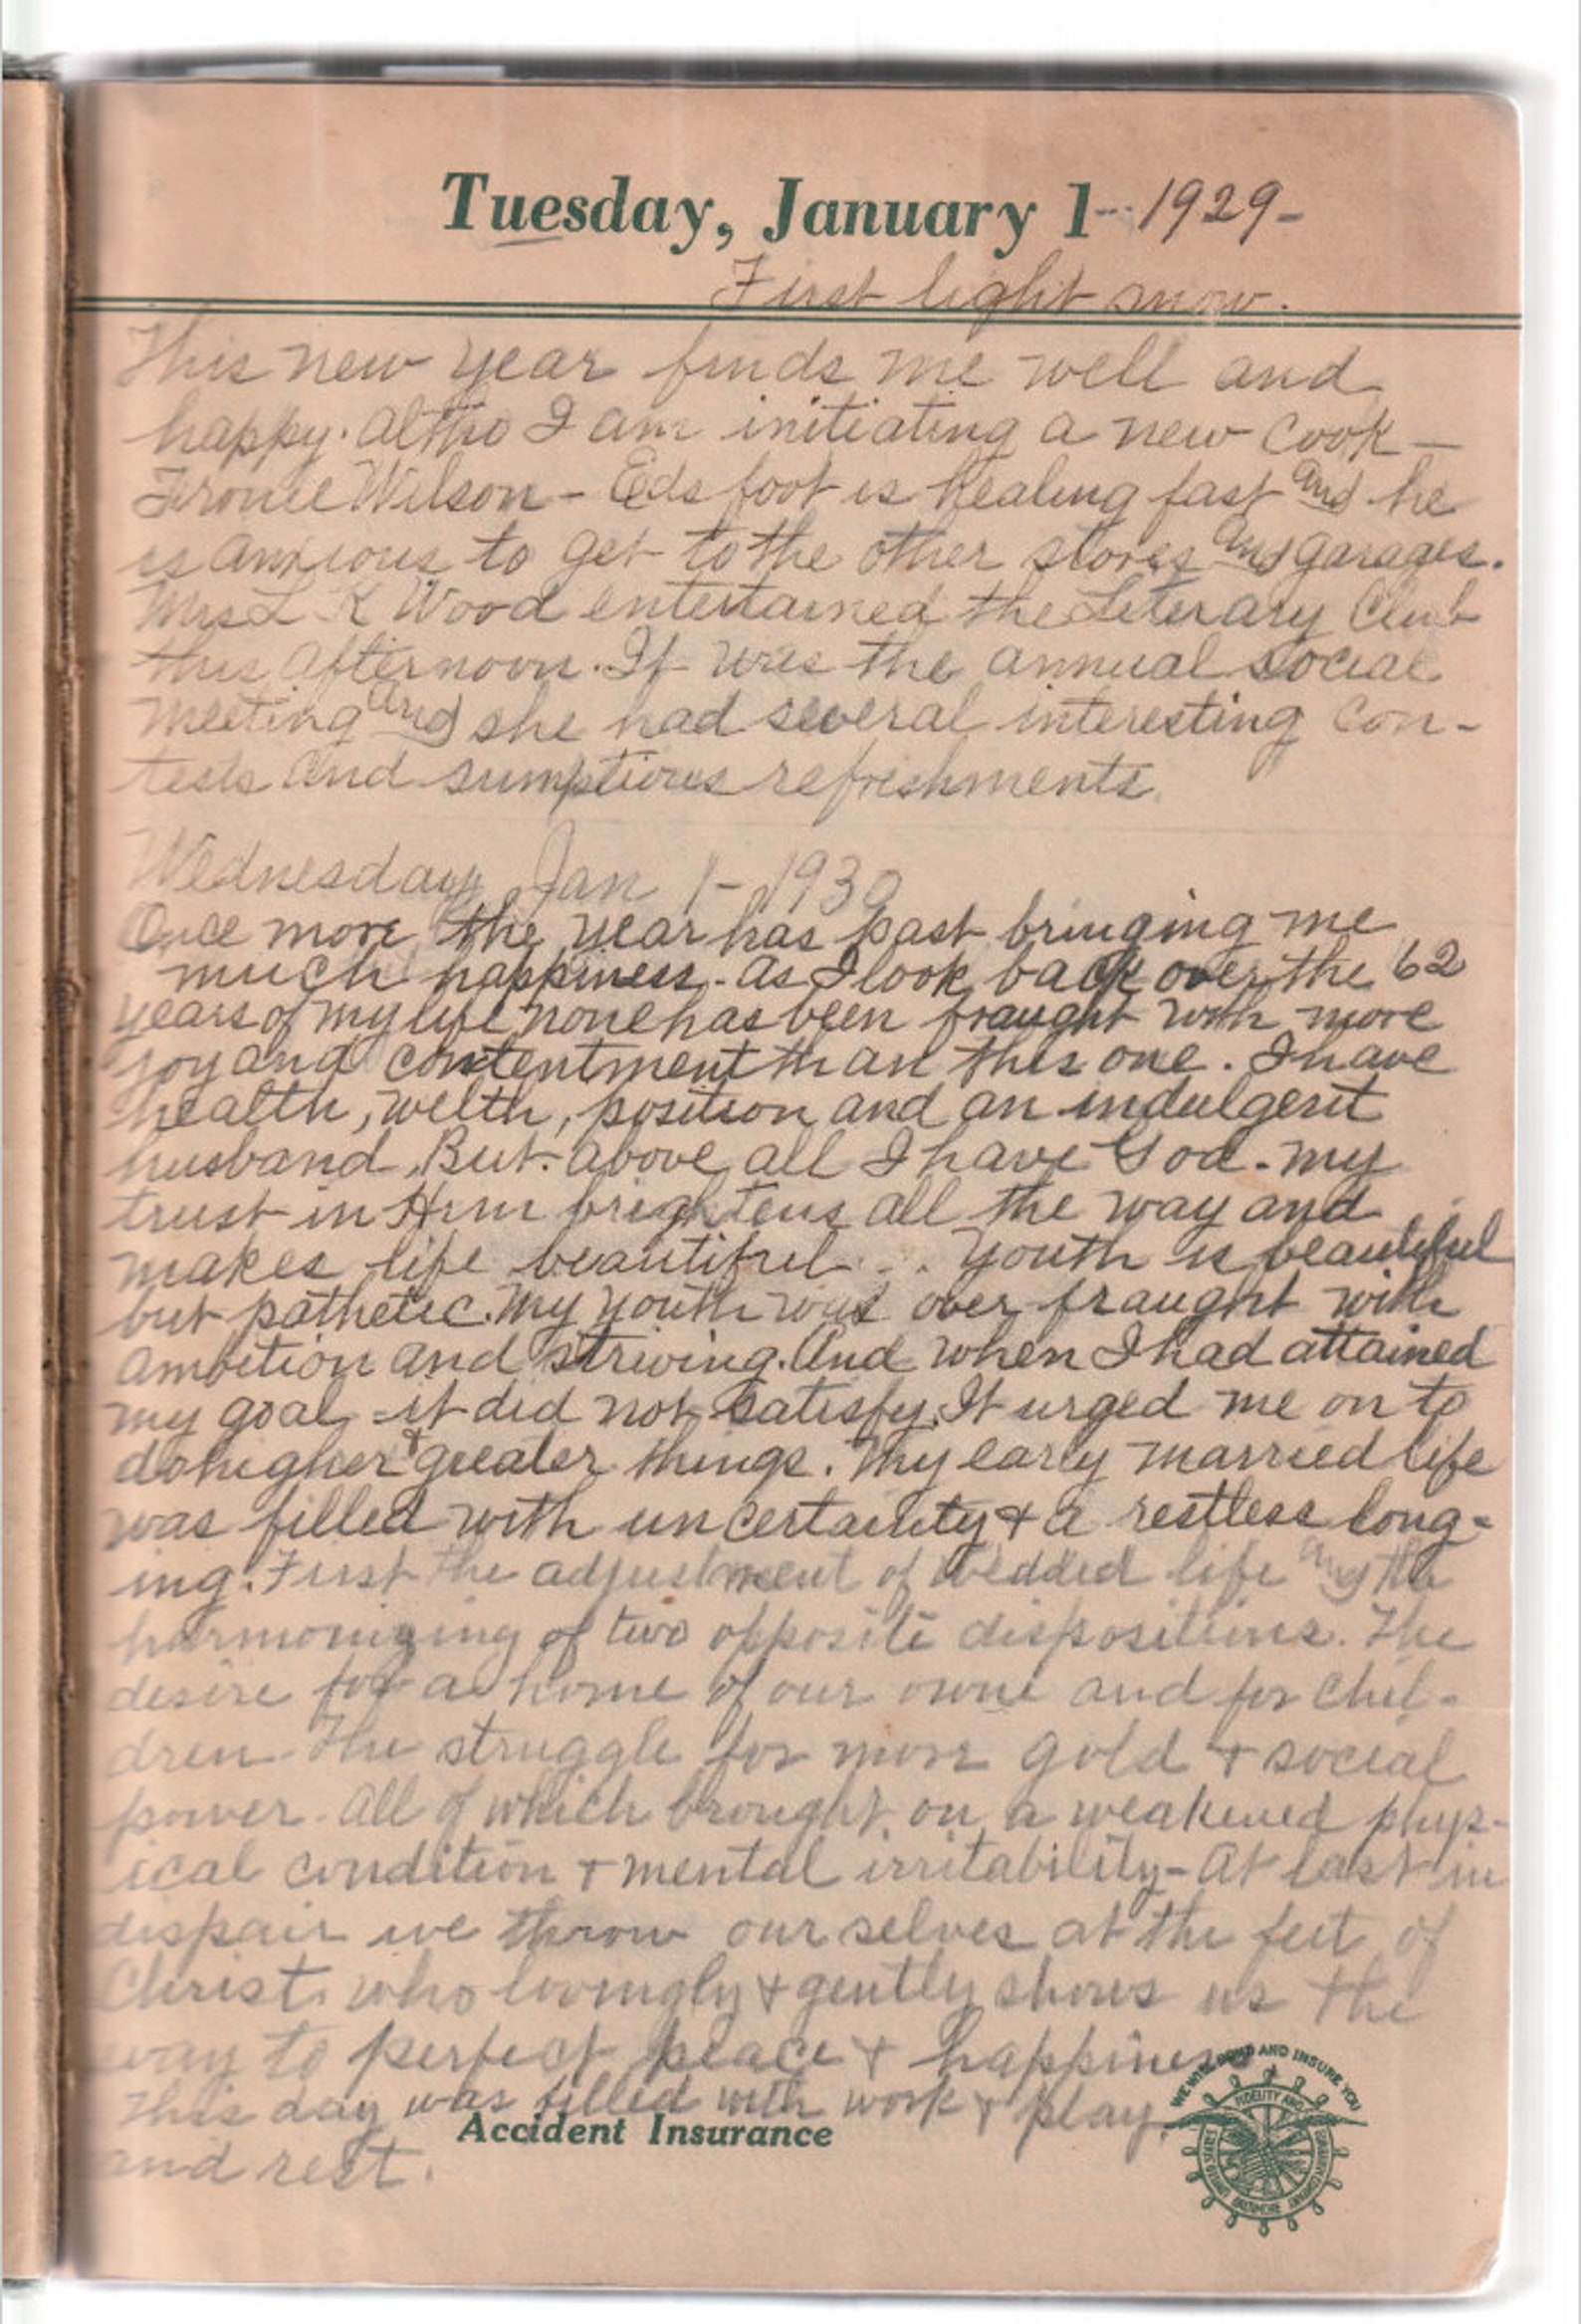 Tuesday, January 1--1929-
First light snow.
This new year finds me well and
happy. Altho I am initiating a new cook—
Wilson - Eds foot is healing fast and he
is anxious to get to the other stores and garages.
Mrs L K Wood entertained the Literary Club
this afternoon. It was the annual social
meeting and she had several interesting con-
tests and sumptious refreshments.
Wednesday Jan 1-1930
Once more the year has past bringing me
much happiness. As I look back over the 62
years of my life none has been fraught with more
joy and contentment than this one. I have
health, welth, position and an indulgent
husband. But above all I have God. My
trust in Him brightens all the way and
makes life beautiful... Youth is beautiful
but pathetic. My youth was over fraught with
ambition and striving. And when I had attained
my goal - it did not satisfy. It urged me on to
do higher & greater things. My early married life
was filled with uncertainty & a restless long-
ing. First the adjustment of wedded life and the
harmonizing of two opposite dispositions. The
desire for a home of our own and for chil-
dren. The struggle for more gold & social
power. All of which brought on a weakened phys-
ical condition & mental irritability- At last in
dispair we throw ourselves at the feet of
Christ who lovingly & gently shows us the
way to perfect peace & happiness
This day was filled with work & play,
and rest.
Accident Insurance
WE WILL BOND AND INSURE YOU
UNITED STATES FIDELITY AND GUARANTY COMPANY BALTIMORE MARYLAND